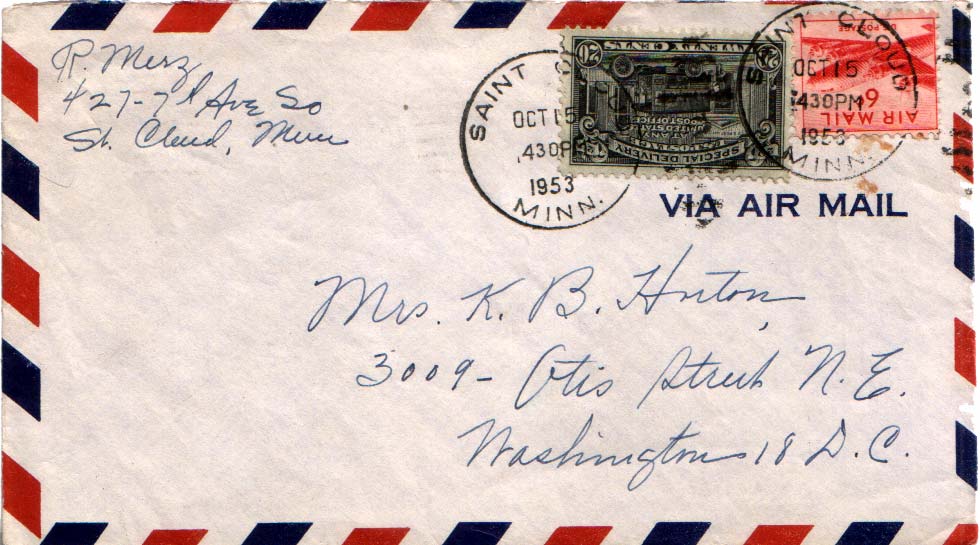 R. Merz
427-7th Ave So
St. Cloud, Minn
SAINT CLOUD
OCT 15
430PM
1953
MINN.
SPECIAL DELIVERY
AT ANY
UNITED STATES
POST OFFICE
20
TWENTY CENTS
20
SAINT CLOUD
OCT 15
430PM
1953
MINN.
AIR MAIL
6¢
POSTAGE
VIA AIR MAIL
Mrs. K. B. Horton,
3009- Otis Street N.E.
Washington 18 D.C.